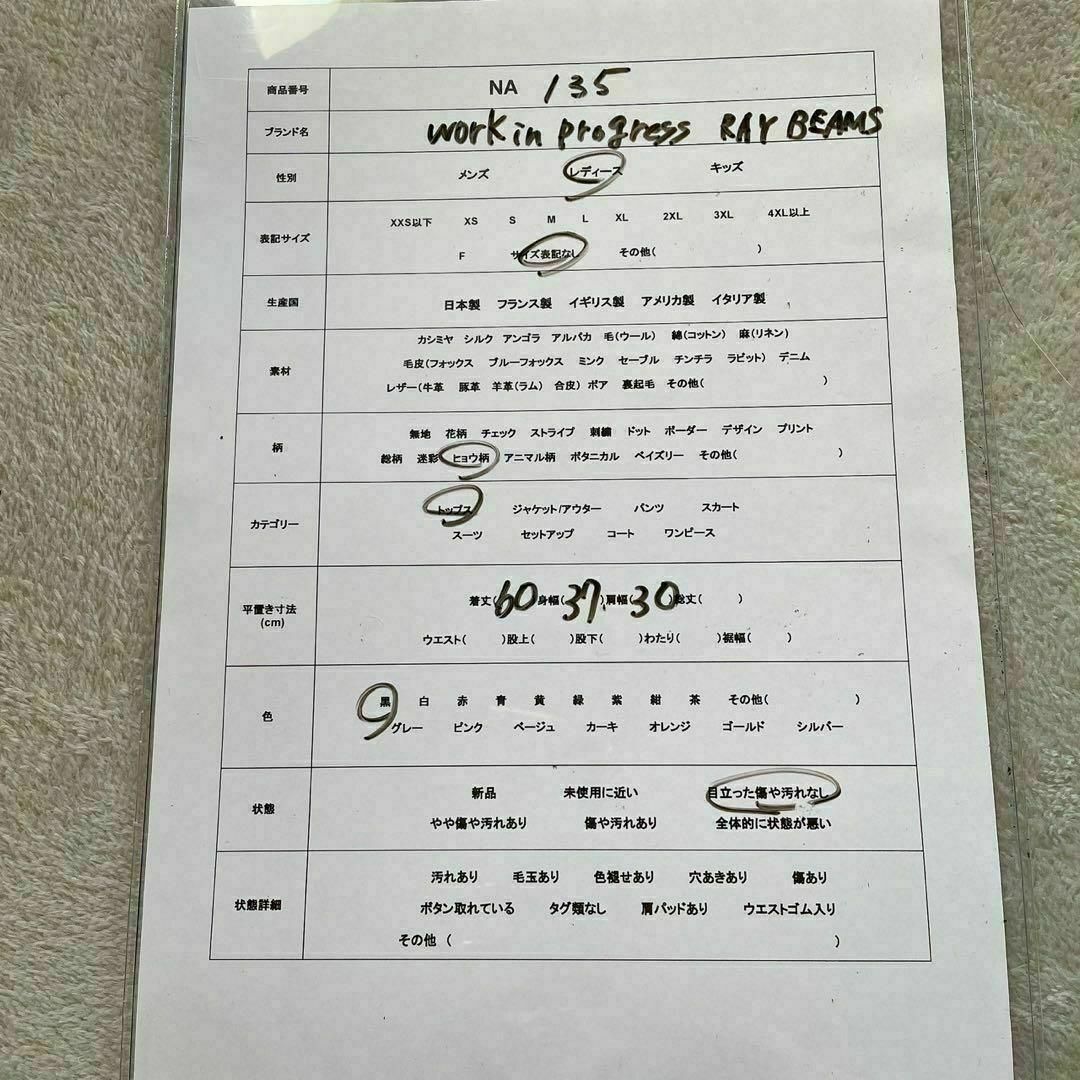 商品番号 NA 135
ブランド名 work in progress RAY BEAMS
性別 メンズ レディース キッズ
XXS以下 XS S M L XL 2XL 3XL 4XL以上
表記サイズ
F サイズ表記なし その他( )
生産国 日本製 フランス製 イギリス製 アメリカ製 イタリア製
カシミヤ シルク アンゴラ アルパカ 毛(ウール) 綿(コットン) 麻(リネン)
素材 毛皮(フォックス ブルーフォックス ミンク セーブル チンチラ ラビット) デニム
レザー(牛革 豚革 羊革(ラム) 合皮) ボア 裏起毛 その他( )
無地 花柄 チェック ストライプ 刺繍 ドット ボーダー デザイン プリント
柄
総柄 迷彩 ヒョウ柄 アニマル柄 ボタニカル ペイズリー その他( )
トップス ジャケット/アウター パンツ スカート
カテゴリー
スーツ セットアップ コート ワンピース
着丈(60)身幅(37)肩幅(30)総丈( )
平置き寸法
(cm)
ウエスト( )股上( )股下( )わたり( )裾幅( )
黒 白 赤 青 黄 緑 紫 紺 茶 その他( )
色
グレー ピンク ベージュ カーキ オレンジ ゴールド シルバー
新品 未使用に近い 目立った傷や汚れなし
状態
やや傷や汚れあり 傷や汚れあり 全体的に状態が悪い
汚れあり 毛玉あり 色褪せあり 穴あきあり 傷あり
状態詳細 ボタン取れている タグ類なし 肩パッドあり ウエストゴム入り
その他 ( )